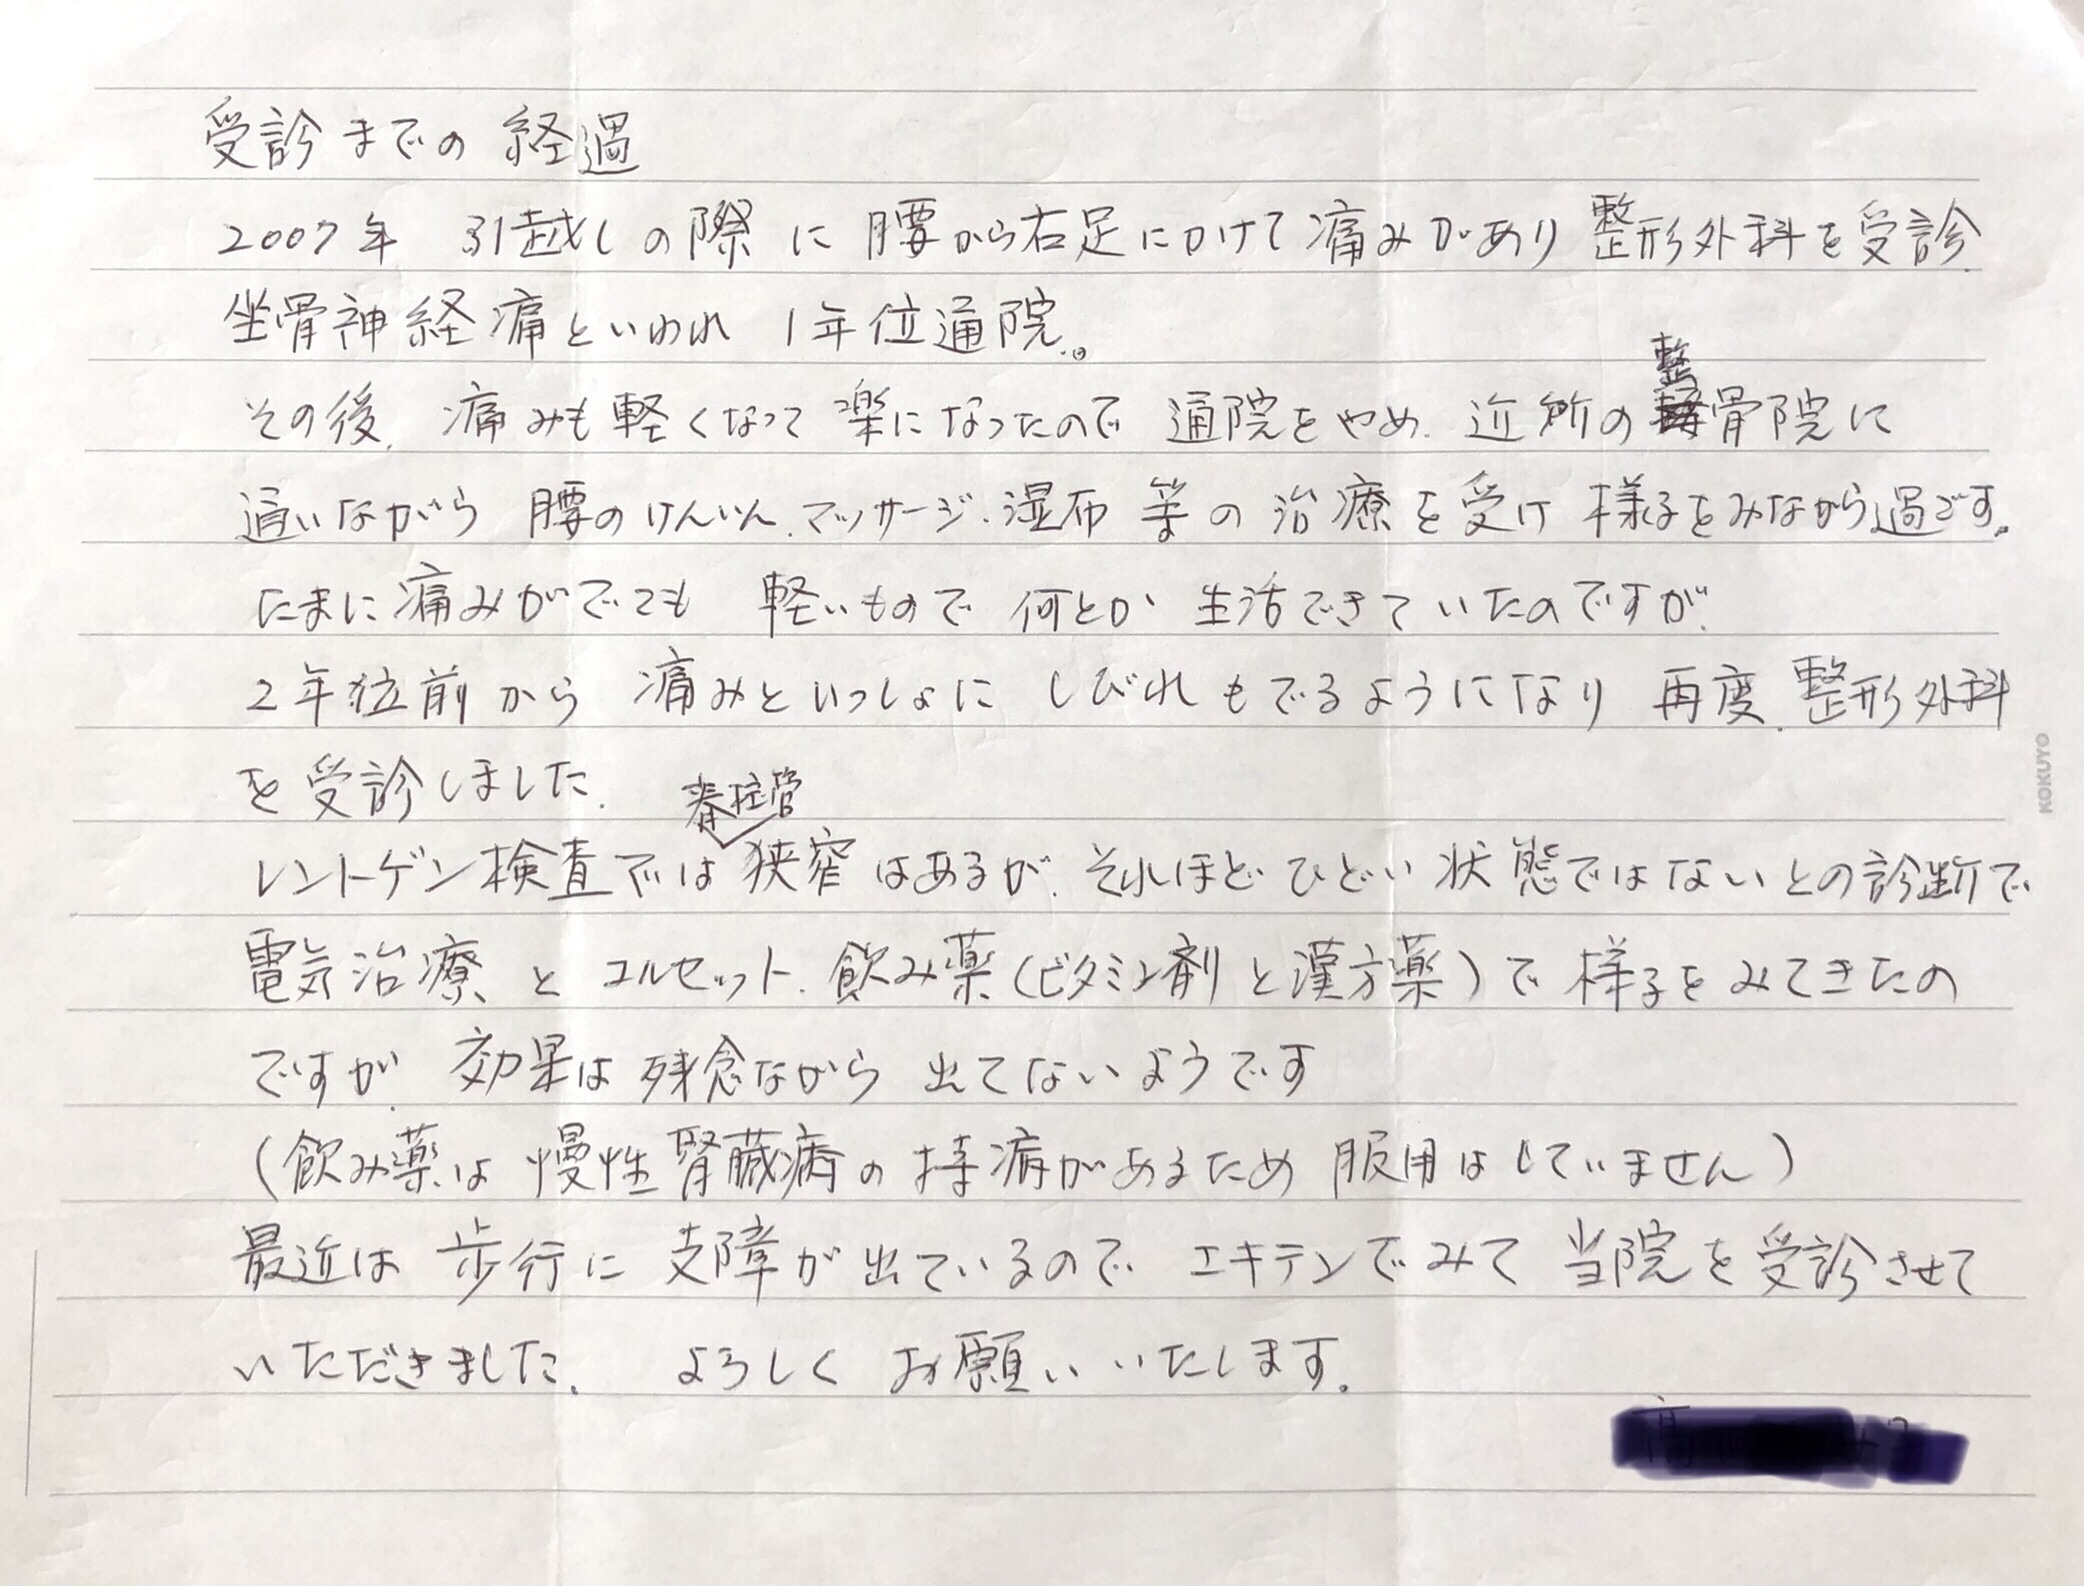 受診までの経過
2007年 引越しの際に腰から右足にかけて痛みがあり整形外科を受診
坐骨神経痛といわれ 1年位通院。
その後、痛みも軽くなって楽になったので通院をやめ、近所の整骨院に
通いながら 腰のけんいん、マッサージ、湿布等の治療を受け様子をみながら過ごす。
たまに痛みがでても 軽いもので何とか生活できていたのですが、
2年位前から痛みといっしょにしびれもでるようになり再度、整形外科
を受診しました。
レントゲン検査では脊柱管狭窄はあるが、それほどひどい状態ではないとの診断で
電気治療とコルセット、飲み薬(ビタミン剤と漢方薬)で様子をみてきたの
ですが、効果は残念ながら出てないようです
(飲み薬は慢性腎臓病の持病があるため服用はしていません)
最近は歩行に支障が出ているので、エキテンでみて当院を受診させて
いただきました。 よろしくお願いいたします。
KOKUYO